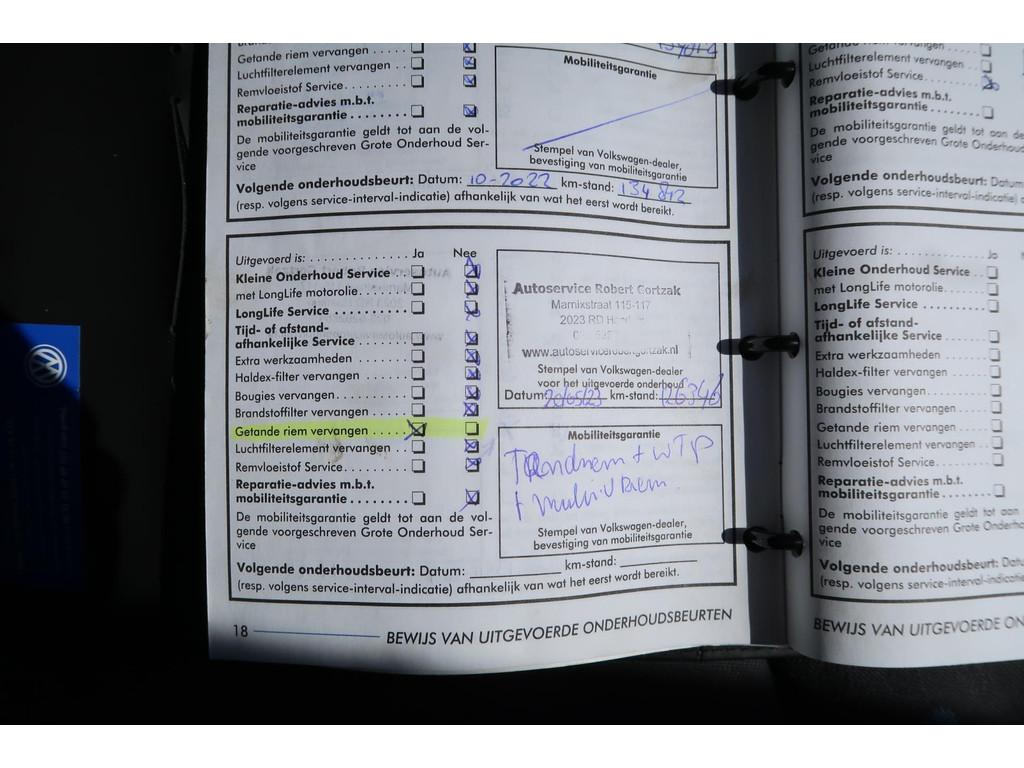 Getande riem vervangen ......
Luchtfilterelement vervangen ..
Remvloeistof Service.........
Reparatie-advies m.b.t.
mobiliteitsgarantie .........
De mobiliteitsgarantie geldt tot aan de vol-
gende voorgeschreven Grote Onderhoud Ser-
vice
Mobiliteitsgarantie
Stempel van Volkswagen-dealer,
bevestiging van mobiliteitsgarantie
Volgende onderhoudsbeurt: Datum: 10-2022 km-stand: 134 842
(resp. volgens service-interval-indicatie) afhankelijk van wat het eerst wordt bereikt.
Uitgevoerd is: .............. Ja Nee
Kleine Onderhoud Service ..
met LongLife motorolie.....
LongLife Service ..........
Tijd- of afstand-
afhankelijke Service .......
Extra werkzaamheden ......
Haldex-filter vervangen .....
Bougies vervangen..........
Brandstoffilter vervangen ....
Getande riem vervangen .....
Luchtfilterelement vervangen ..
Remvloeistof Service.........
Reparatie-advies m.b.t.
mobiliteitsgarantie ........
De mobiliteitsgarantie geldt tot aan de vol-
gende voorgeschreven Grote Onderhoud Ser-
vice
Autoservice Robert Gortzak
Marnixstraat 115-117
2023 RD
www.autoservicerobertgortzak.nl
Stempel van Volkswagen-dealer
voor het uitgevoerde onderhoud
Datum: 20/05/23 km-stand: 126346
Mobiliteitsgarantie
+ WTP
+ Multi-V Riem
Stempel van Volkswagen-dealer,
bevestiging van mobiliteitsgarantie
Volgende onderhoudsbeurt: Datum: ____________ km-stand: ____________
(resp. volgens service-interval-indicatie) afhankelijk van wat het eerst wordt bereikt.
18 BEWIJS VAN UITGEVOERDE ONDERHOUDSBEURTEN
Getande riem vervangen
Luchtfilterelement vervangen ..
Remvloeistof Service.........
Reparatie-advies m.b.t.
mobiliteitsgarantie ........
De mobiliteitsgarantie geldt tot aan de
gende voorgeschreven Grote Onderhoud
vice
Volgende onderhoudsbeurt: Datum
(resp. volgens service-interval-indicatie)
Uitgevoerd is: .............. Ja
Kleine Onderhoud Service ..
met LongLife motorolie.....
LongLife Service ..........
Tijd- of afstand-
afhankelijke Service .......
Extra werkzaamheden ......
Haldex-filter vervangen .....
Bougies vervangen..........
Brandstoffilter vervangen ....
Getande riem vervangen .....
Luchtfilterelement vervangen ..
Remvloeistof Service.........
Reparatie-advies m.b.t.
mobiliteitsgarantie ........
De mobiliteitsgarantie geldt tot aan
gende voorgeschreven Grote
vice
Volgende onderhoudsbeurt:
(resp. volgens service-interval-indicatie)
BEWIJS VAN UITGEVOERDE